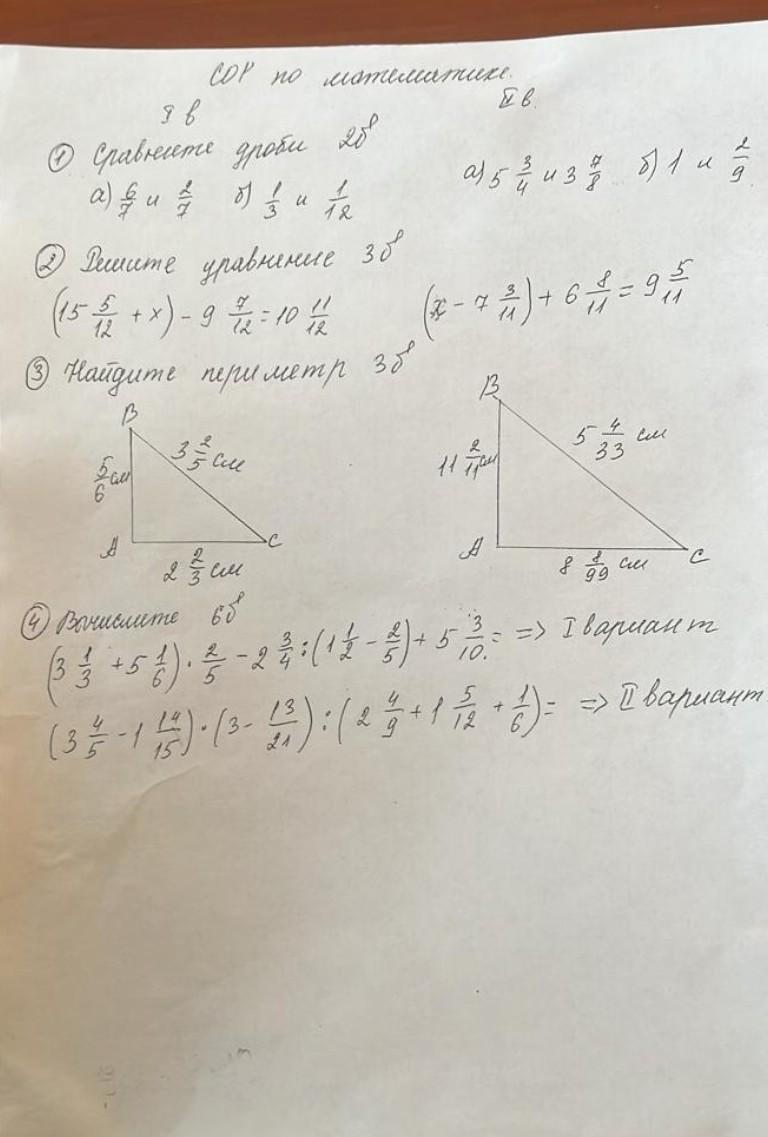 СОР по математике.
I в
II в.
① Сравните дроби 2б
а) 6/7 и 2/7 б) 1/3 и 1/12
а) 5 3/4 и 3 7/8 б) 1 и 2/9
② Решите уравнение 3б
(15 5/12 + x) - 9 7/12 = 10 11/12
(x - 7 3/11) + 6 8/11 = 9 5/11
③ Найдите периметр 3б
B
5/6 см
3 2/5 см
A
C
2 2/3 см
B
11 2/11 см
5 4/33 см
A
C
8 8/99 см
④ Вычислите 6б
(3 1/3 + 5 1/6) · 2/5 - 2 3/4 : (1 1/2 - 2/5) + 5 3/10 = => I вариант
(3 4/5 - 1 14/15) · (3 - 13/21) : (2 4/9 + 1 5/12 + 1/6) = => II вариант